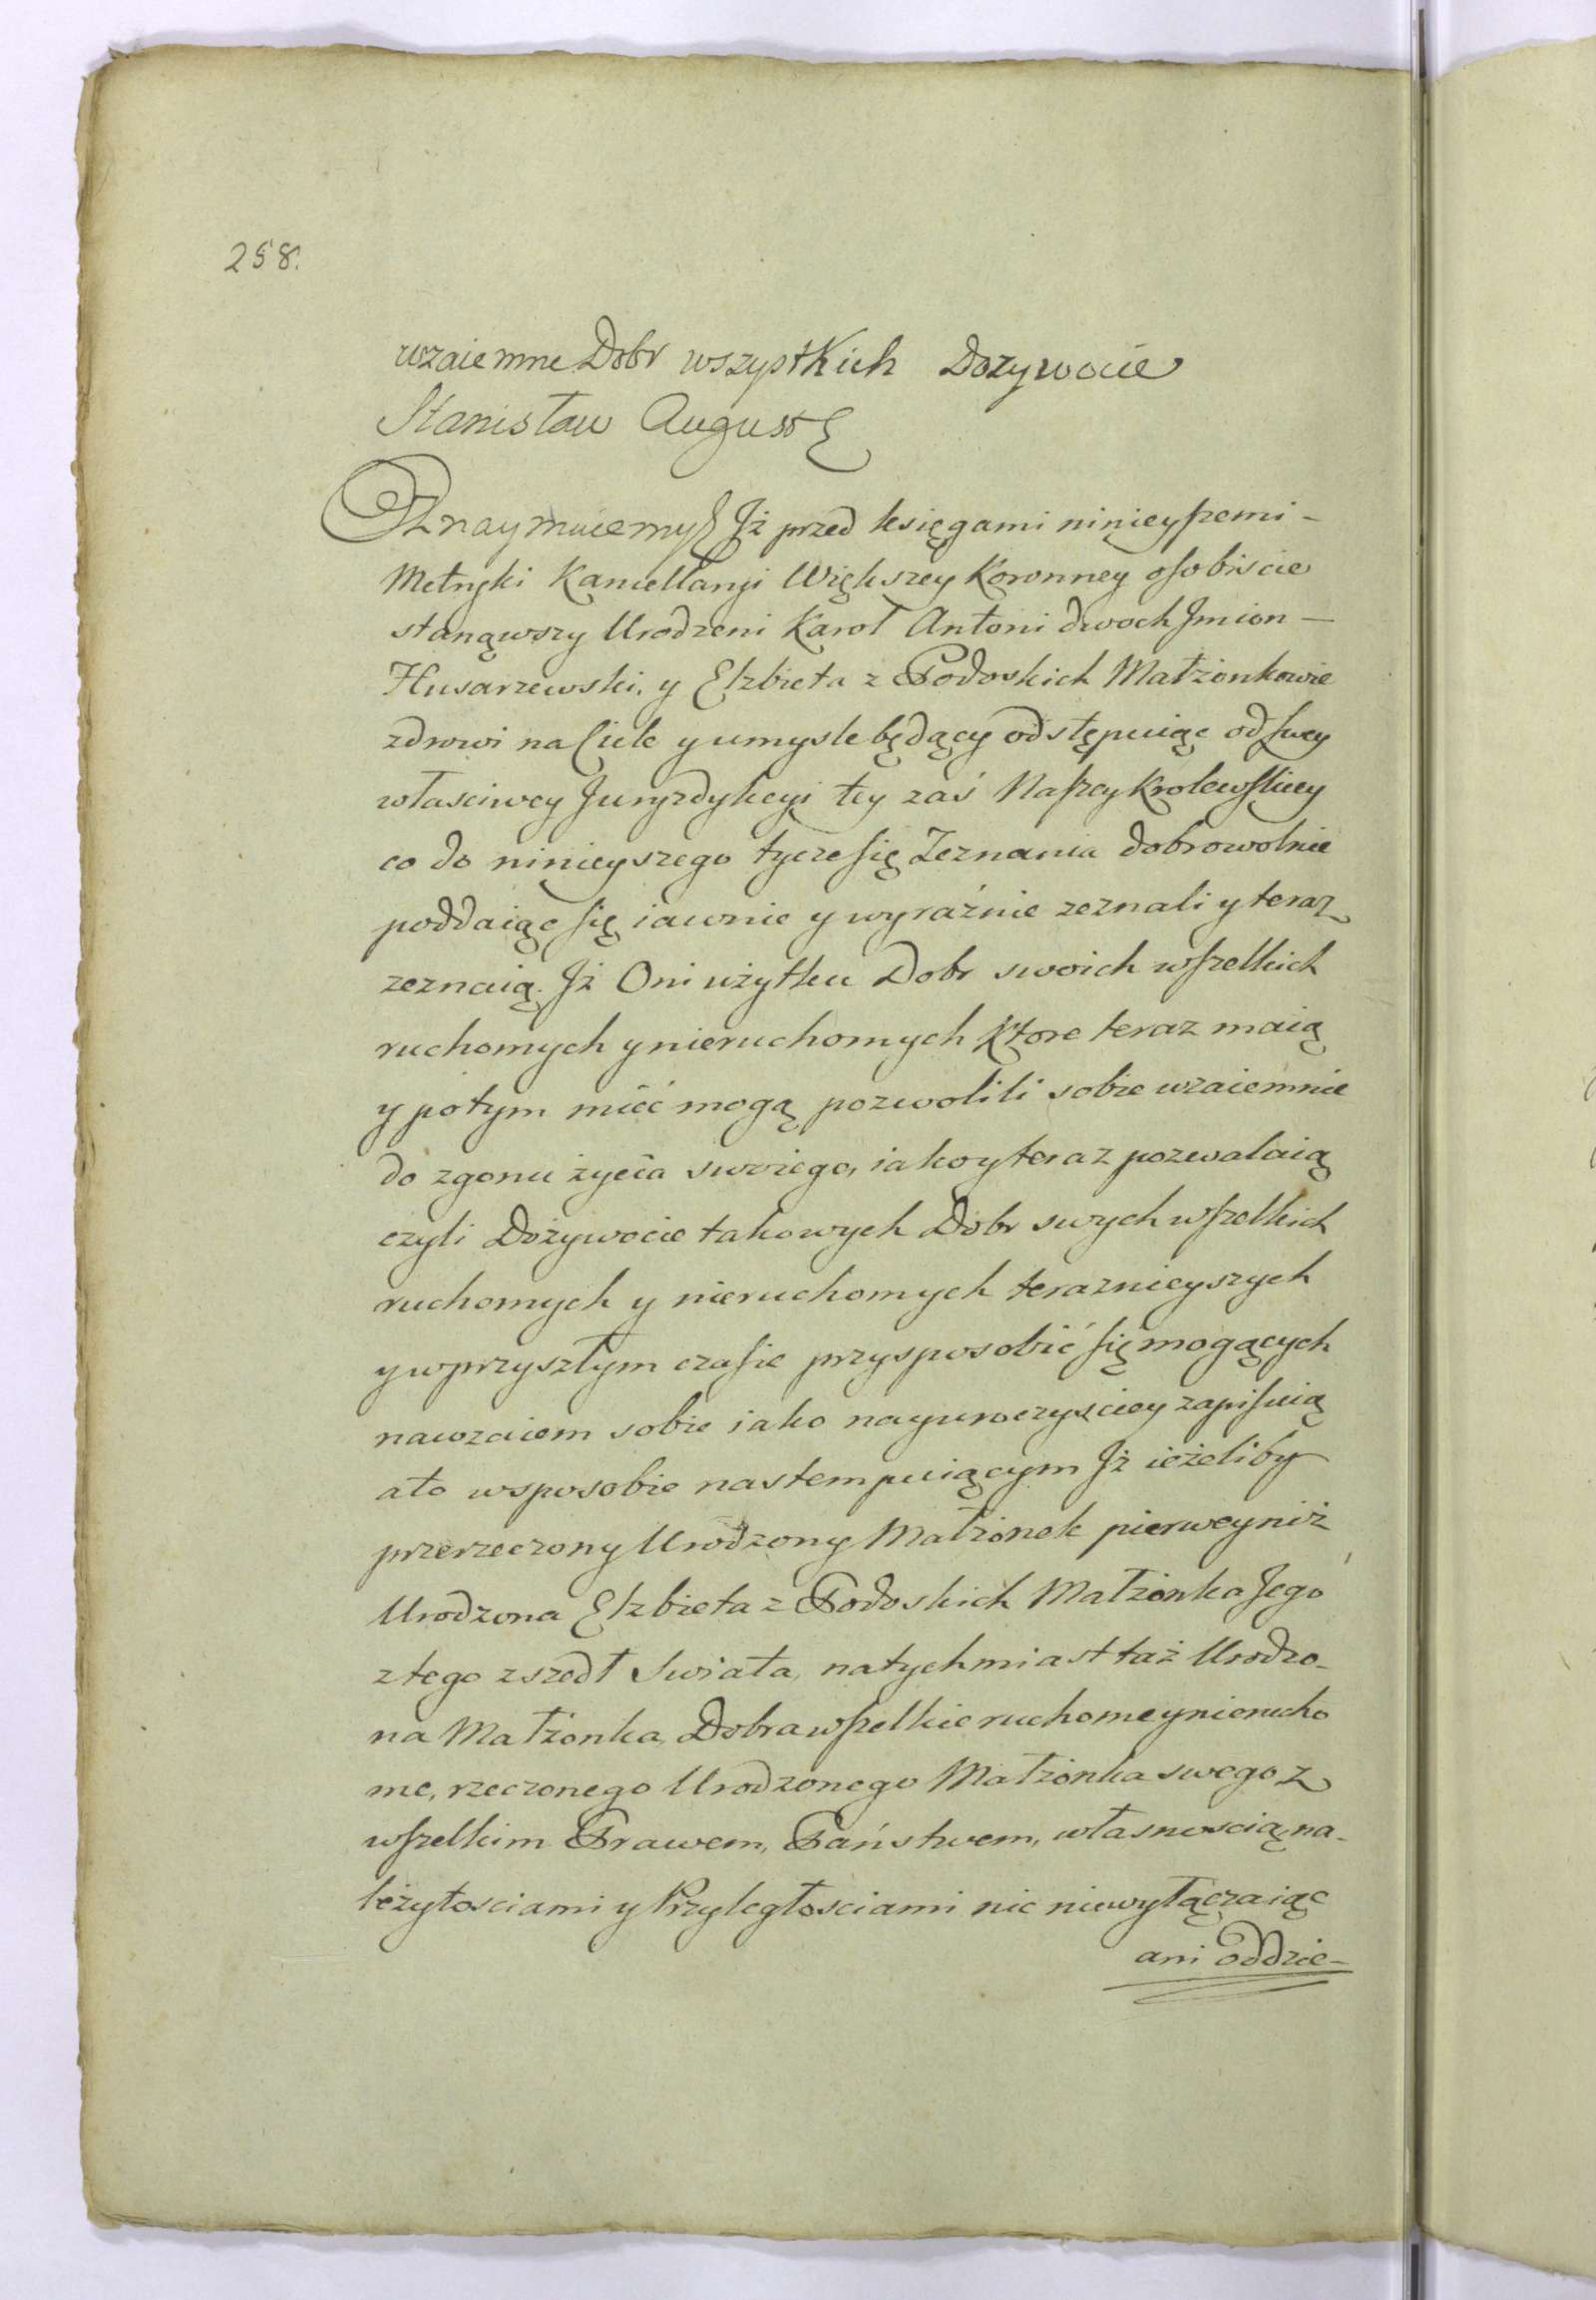 258.
wzaiemne Dobr wszystkich Dozywocie
Stanisław August
Oznaymuiemy Jż przed księgami ninieyszemi -
Metryki Kancellaryi Większey Koronney osobiscie
stanąwszy Urodzeni Karol Antoni dwoch Jmion -
Husarzewski, y Elzbieta z Podoskich Małżonkowie
zdrowi na Ciele y umysle będący odstępuiąc od swey
własciwey Juryzdykcyi tey zaś Naszey Krolewskiey
co do ninieyszego tycze się Zeznania dobrowolnie
poddaiąc się iawnie y wyraźnie zeznali y teraz
zeznaią. Jż Oni użytku Dobr swoich wszelkich
ruchomych y nieruchomych ktore teraz maią
y potym mieć mogą pozwolili sobie wzaiemnie
do zgonu życia swoiego, iako y teraz pozwalaią
czyli Dożywocie takowych Dobr swych wszelkich
ruchomych y nieruchomych teraznieyszych
y w przyszłym czasie przysposobić się mogących
nawzaiem sobie iako nayuroczysciey zapisuią
a to w sposobie nastempuiącym Jż ieżeliby
przerzeczony Urodzony Małżonek pierwey niż
Urodzona Elzbieta z Podoskich Małżonka Jego
z tego zszedł Swiata, natychmiast taż Urodzo-
na Małżonka, Dobra wszelkie ruchome y nierucho
me, rzeczonego Urodzonego Małżonka swego z
wszelkim Prawem, Państwem, własnoscią na-
leżytosciami y Przyległosciami nic niewyłączaiąc
ani oddzie-